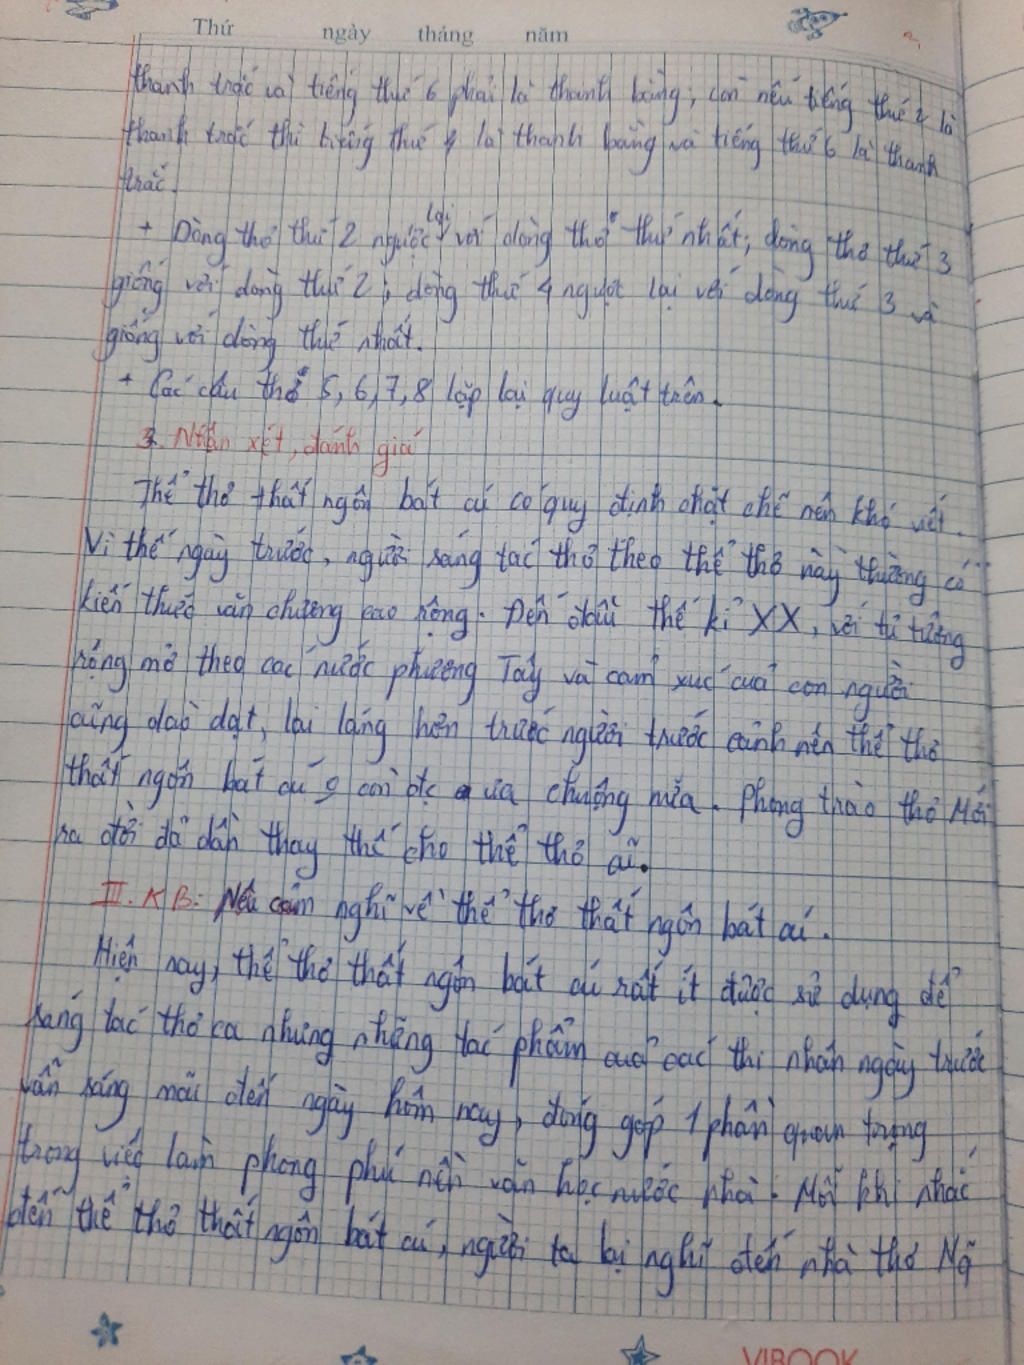 Thứ ngày tháng năm
thanh trắc và tiếng thứ 6 phải là thanh bằng; còn nếu tiếng thứ 2 là
thanh trắc thì tiếng thứ 4 là thanh bằng và tiếng thứ 6 là thanh
trắc.
+ Dòng thơ thứ 2 ngược lại với dòng thơ thứ nhất; dòng thơ thứ 3
giống với dòng thứ 2; dòng thứ 4 ngược lại với dòng thứ 3 và
giống với dòng thứ nhất.
+ Các câu thơ 5, 6, 7, 8 lặp lại quy luật trên.
3. Nhận xét, đánh giá
Thể thơ thất ngôn bát cú có quy định chặt chẽ nên khó viết.
Vì thế ngày trước, người sáng tác thơ theo thể thơ này thường có
kiến thức văn chương cao rộng. Đến đầu thế kỉ XX, với tư tưởng
rộng mở theo các nước phương Tây và cảm xúc của con người
cũng dào dạt, lai láng hơn trước người trước cảnh nên thể thơ
thất ngôn bát cú o còn đc ưa chuộng nữa. Phong trào thơ Mới
ra đời đã dần thay thế cho thể thơ cũ.
III. KB: Nêu cảm nghĩ về thể thơ thất ngôn bát cú.
Hiện nay, thể thơ thất ngôn bát cú rất ít được sử dụng để
sáng tác thơ ca nhưng những tác phẩm của các thi nhân ngày trước
vẫn sáng mãi đến ngày hôm nay, đóng góp 1 phần quan trọng
trong việc làm phong phú nền văn học nước nhà. Mỗi khi nhắc
đến thể thơ thất ngôn bát cú, người ta lại nghĩ đến nhà thơ Ng
VIBOOK